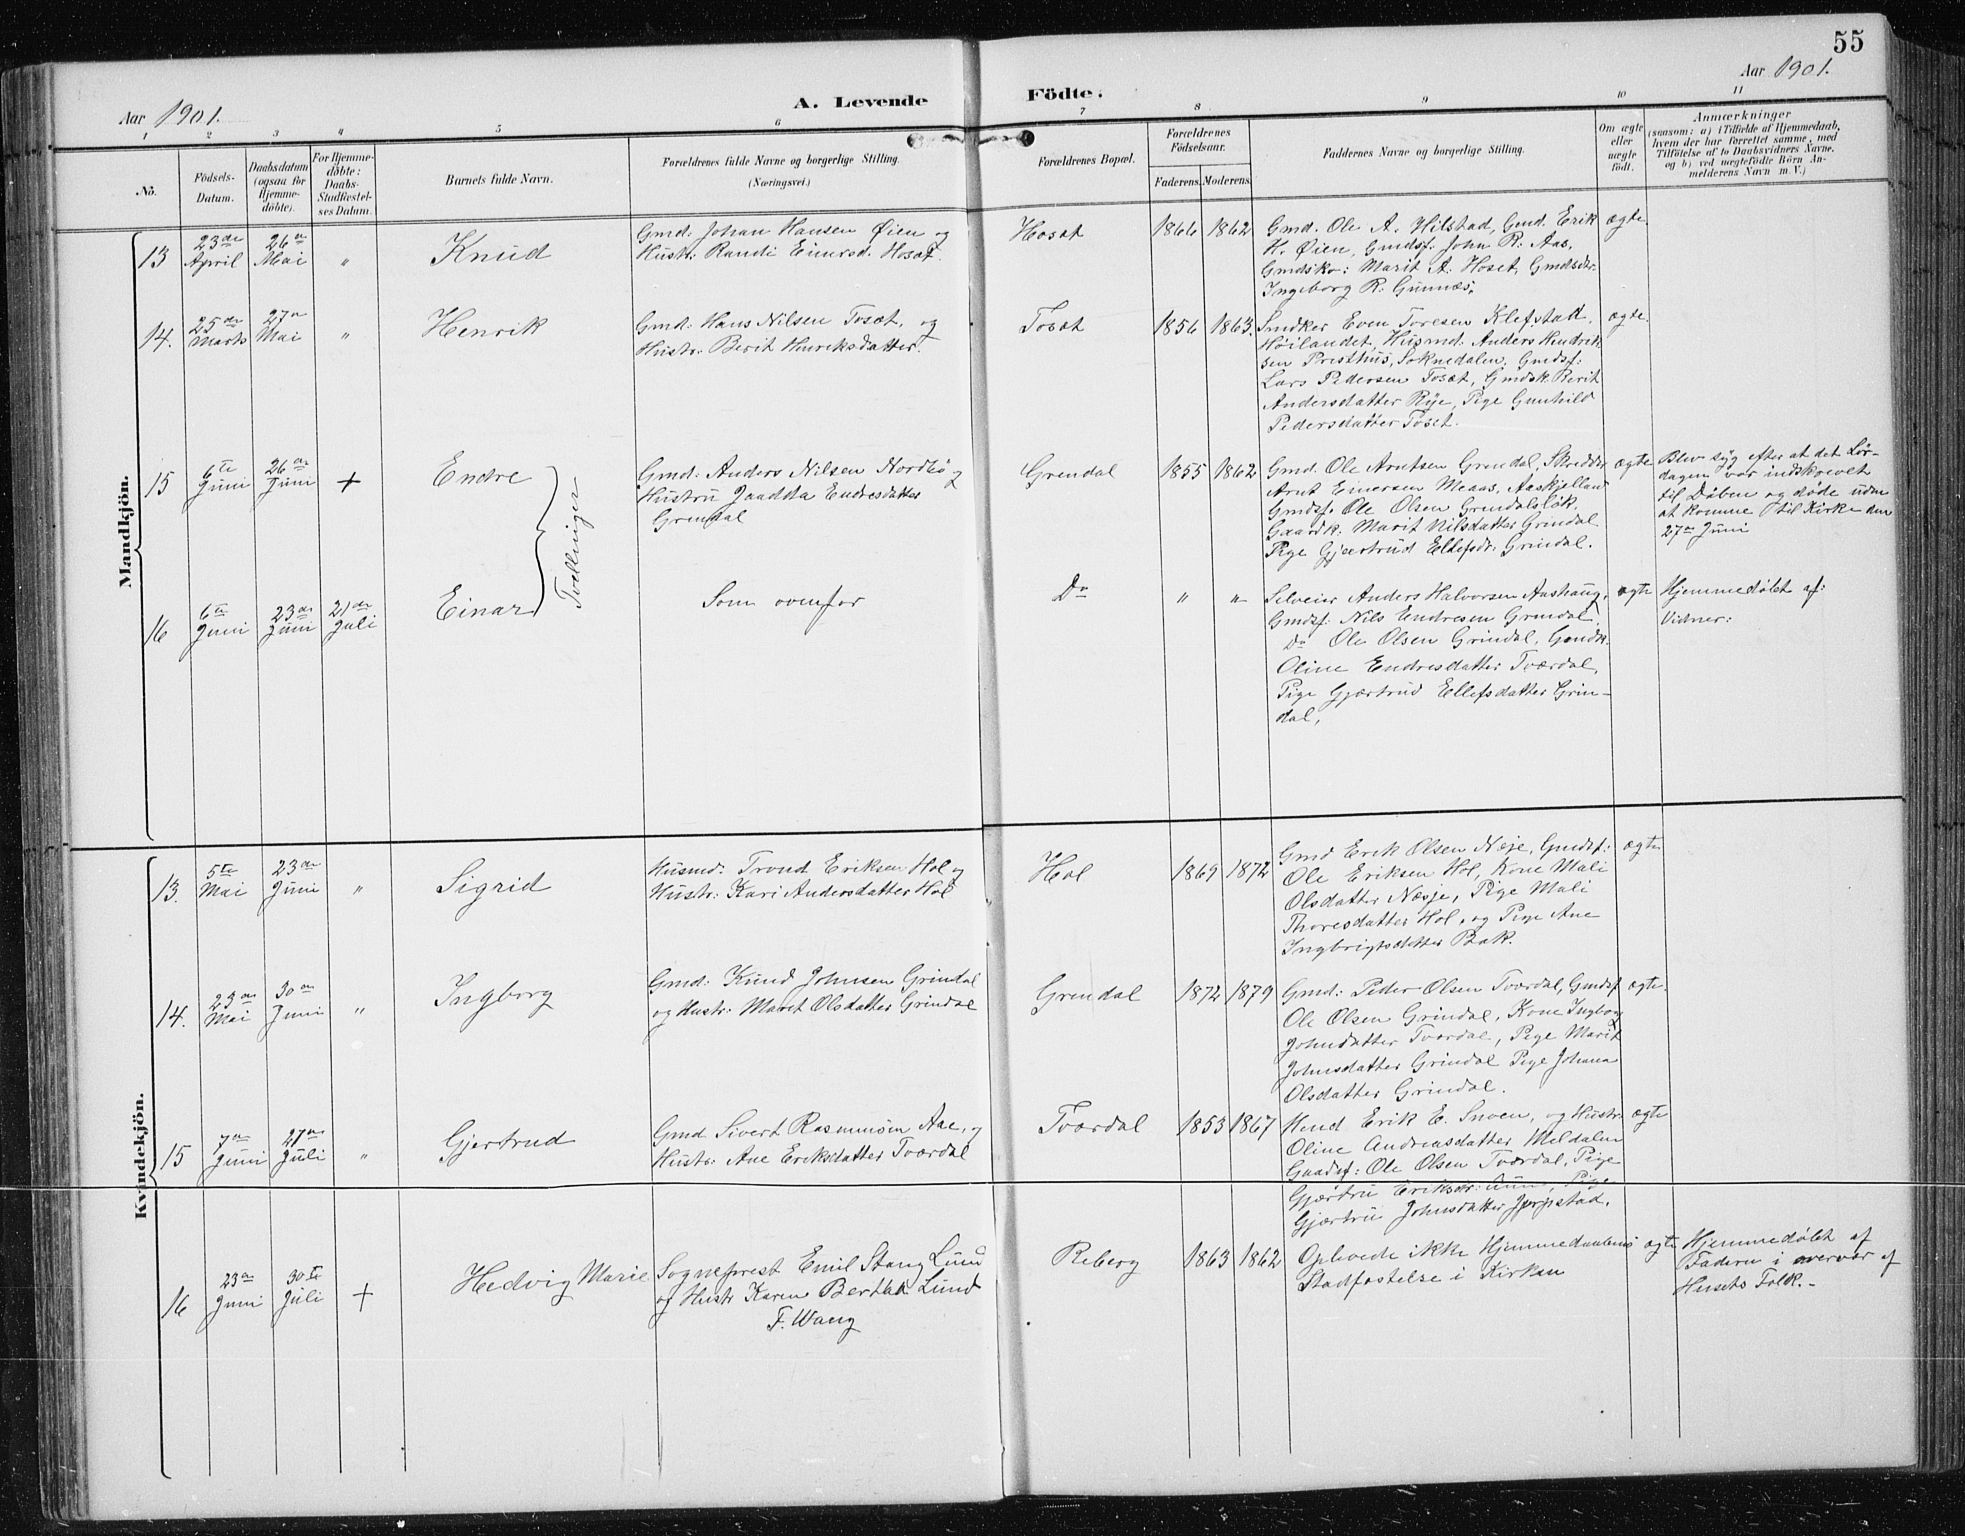 55
Aar 1901.
Aar 1901.
A. Levende Födte.
1 2 3 4 5 6 7 8 9 10 11
No.
Födsels-
Datum.
Daabsdatum
(ogsaa for
Hjemme-
döbte).
For Hjemme-
döbte:
Daabs-
Stadfæstel-
ses Datum.
Barnets fulde Navn.
Forældrenes fulde Navne og borgerlige Stilling.
(Næringsvei.)
Forældrenes Bopæl.
Forældrenes
Födselsaar.
Faderens. Moderens.
Faddernes Navne og borgerlige Stilling.
Om ægte
eller
uægte
födt.
Anmærkninger
(saasom: a) i Tilfælde af Hjemmedaab,
hvem der har forrettet samme, med
Tilföielse af to Daabsvidners Navne.
og b) ved uægtefödte Börn An-
melderens Navn m. V.)
Mandkjön.
13
23de
April
26de
Mai
"
Knud
Gmd: Johan Hansen Øien og
Hustr: Randi Einersd. Hosæt.
Hosæt
1866 1862
Gmd. Ole A. Hilstad, Gmd. Erik
H. Øien, Gmdsf. John R. Aas,
Gmdsko: Marit A. Hoset, Gmdsdtr.
Ingeborg R. Gunnæs.
ægte.
14.
25de
Marts
27de
Mai
"
Henrik
Gmd: Hans Nilsen Tosæt, og
Hustr: Berit Henriksdatter.
Tosæt
1856 1863.
Smdker Even Toresen Klefstak,
Høilandet, Husmd. Anders Hendrik
sen Presthus, Soknedalen, Gmdsf:
Lars Pedersen Tosæt, Gmdsk. Berit
Andersdatter Rye, Pige Gunhild
Pedersdatter Tosæt.
ægte.
15
6te
Juni
26de
Juni
+
Endre
Tvillinger
Gmd: Anders Nilsen Nordbø og
Hustru Jaadda Endresdatter
Grindal
Grendal
1855 1862
Gmd. Ole Arntsen Grendal, Skredder
Arnt Einersen Meaas, Aaskjelland
Gmdsf. Ole Olsen Grendalsløk,
Gaardk. Marit Nilsdatter Grindal
Pige Gjertrud Ellefsdr. Grindal.
ægte
Blev syg efter at det Lør-
dagen var indskrevet
til Døben og døde uden
at komme til Kirke den
27de Juni
16
6te
Juni
23de
Juni
21de
Juli
Einar
Som ovenfor
Do
" "
Selveier Anders Halvorsen Aashaug,
Gmdsf: Nils Endresen Grendal,
Do Ole Olsen Grindal, Gmdk.
Oline Endresdatter Tværdal,
Pige Gjærtrud Ellefsdatter Grin-
dal,
ægte
Hjemmedøbt af:
Vidner:
Kvindekjön.
13.
5te
Mai
23de
Juni
"
Sigrid
Husmd: Trond Eriksen Hol og
Hustr: Kari Andersdatter Hol
Hol
1869 1872
Gmd Erik Olsen Næje, Gmdsf:
Ole Eriksen Hol, Kone Mali
Olsdatter Næsje, Pige Mali
Thoresdatter Hol, og Pige Ane
Ingbrigtsdatter Bak.
ægte
14.
23de
Mai
30de
Juni
"
Ingborg
Gmd: Knud Johnsen Grindal
og Hustr: Marit Olsdatter Grindal
Grendal
1872 1879
Gmd: Peder Olsen Tværdal, Gmdsf
Ole Olsen Grindal, Kone Ingborg
Johnsdatter Tværdal, Pige Marit
Johnsdatter Grindal Pige Johana
Olsdatter Grindal.
ægte.
15
7de
Juni
27de
Juli
"
Gjertrud
Gmd Sivert Rasmussen Aae, og
Hustr: Ane Eriksdatter Tværdal
Tværdal
1853 1867
Hmd Erik E. Snoen, og Hustr
Oline Andreasdatter Meldalen
Gaadsf: Ole Olsen Tværdal, Pige
Gjærtru Eriksdr: Pige
Gjærtru Johnsdatter Jerpstad.
ægte
16
23de
Juni
30te
Juli
+
Hedvig Marie
Sogneprest Emil Stang Lund
og Hustr Karen Berthea Lund
F. Wang
Reberg
1863 1862
Oplevede ikke Hjemmedaabens
Stadfæstelse i Kirken
ægte
Hjemmedøbt af
Faderen i overvær af
Husets Folk.-